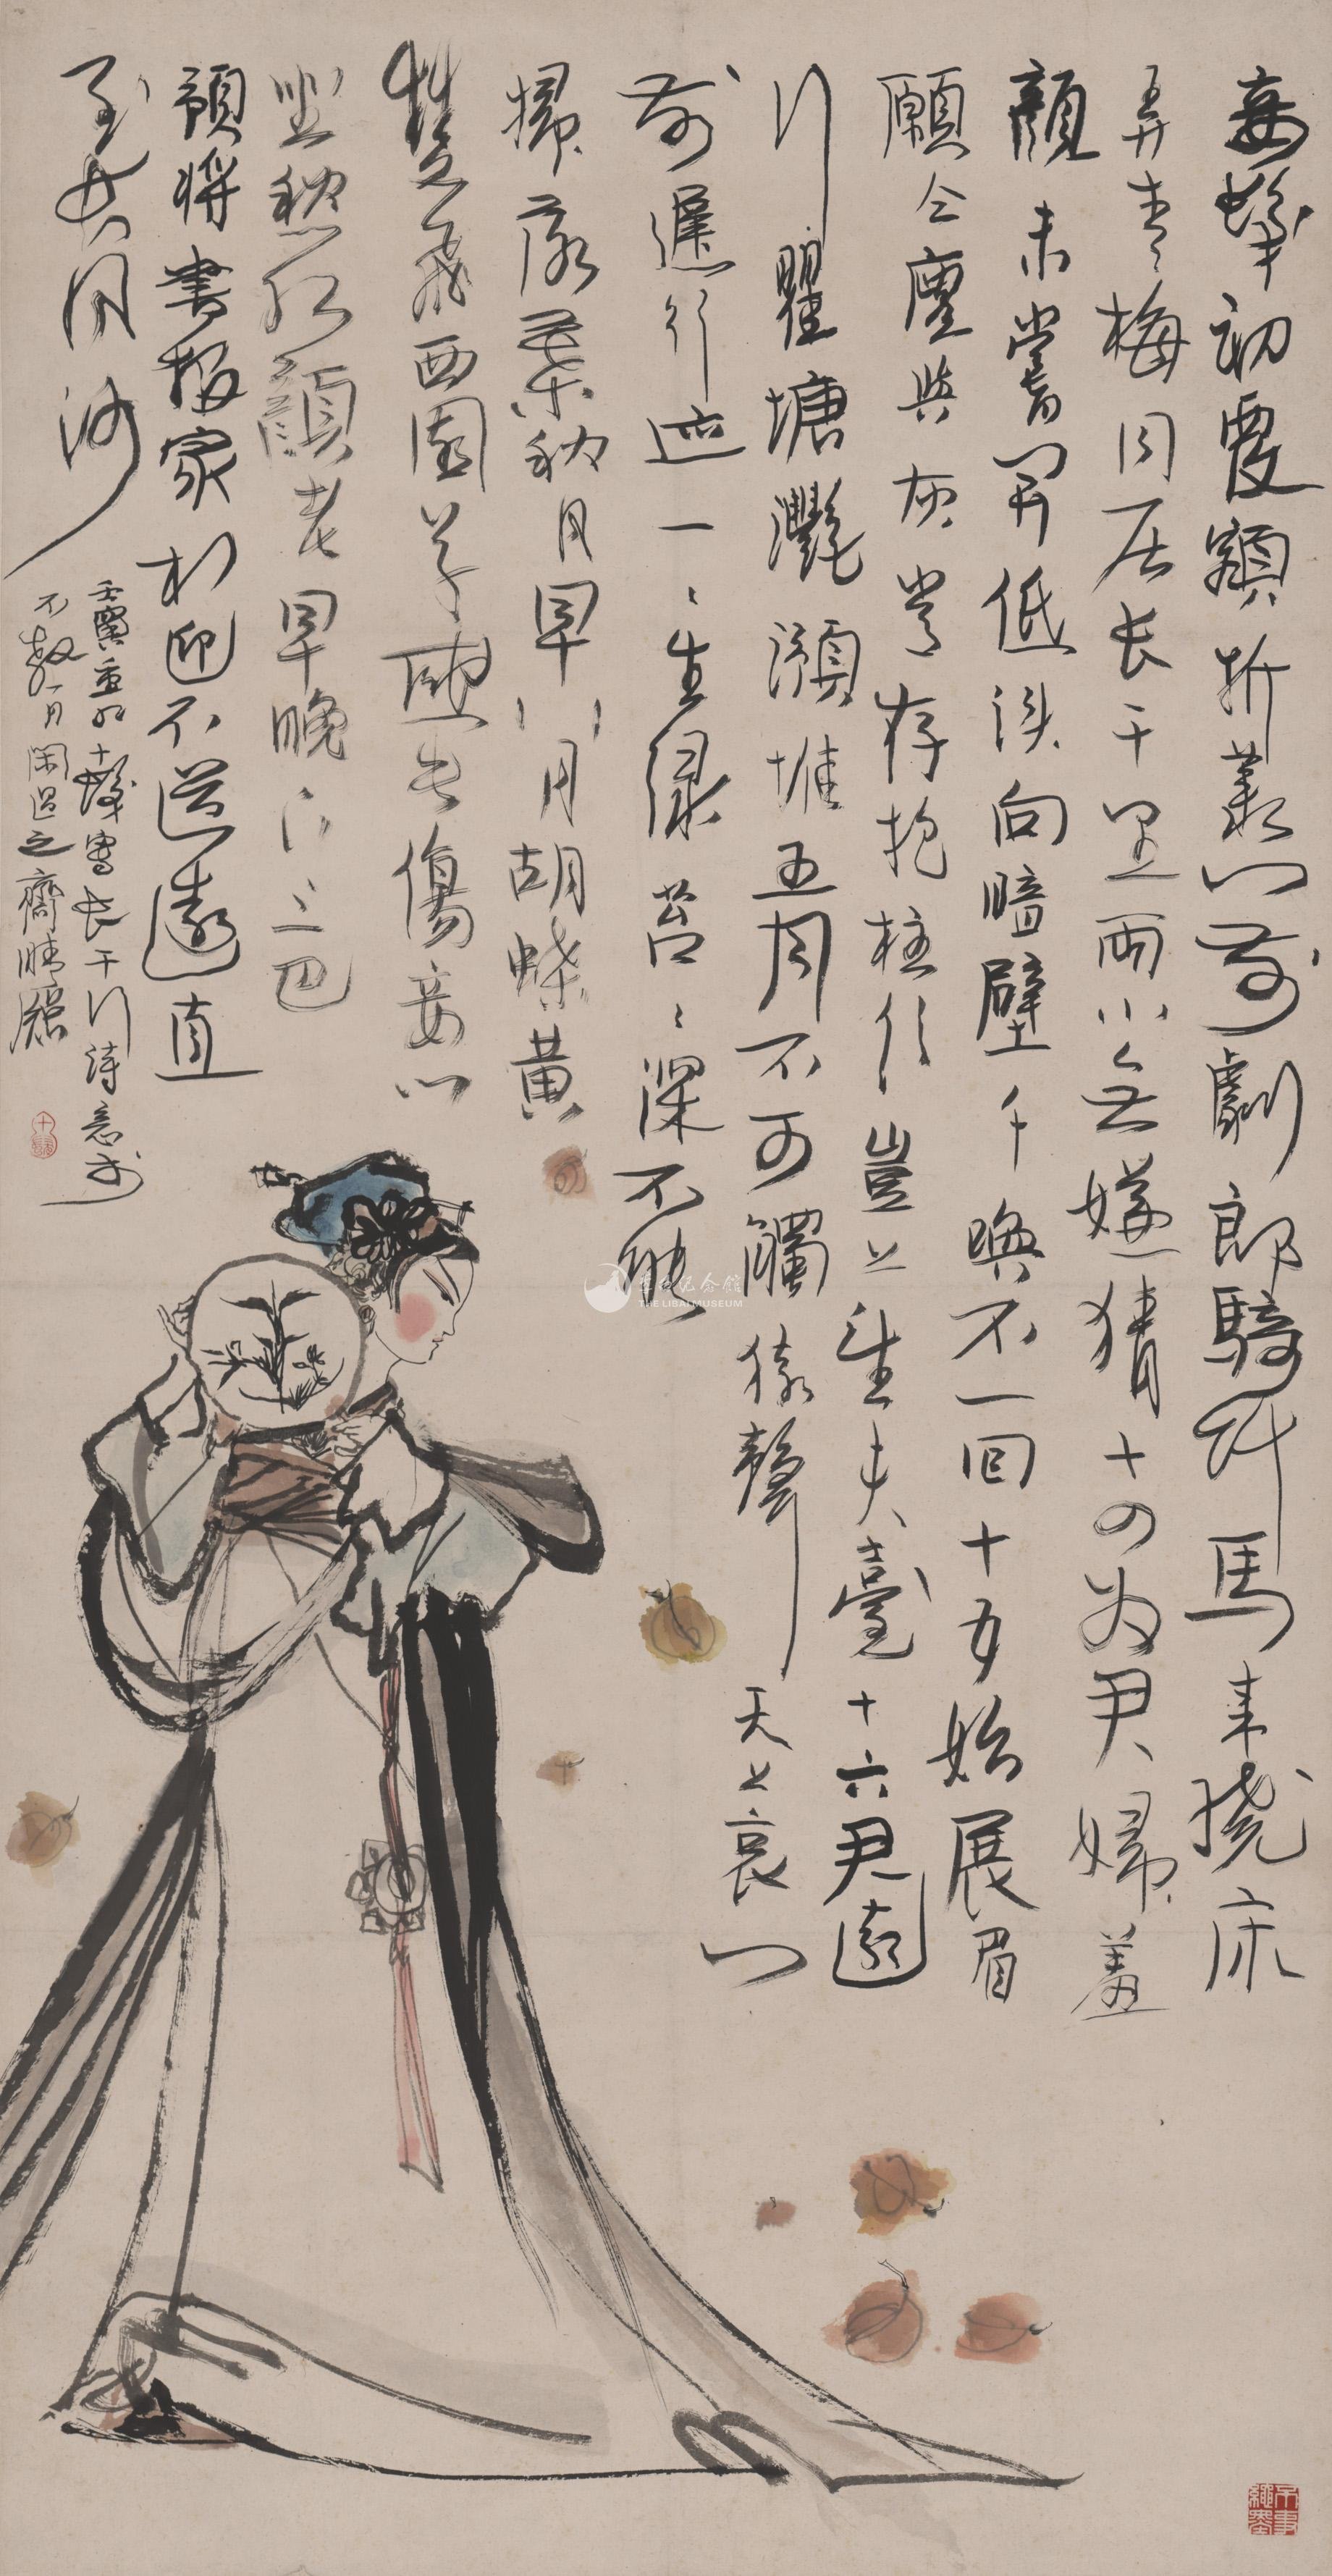 妾髮初覆額折花門前劇郎騎竹馬来繞床
弄青梅同居长干里兩小無嫌猜十四为君婦羞
顏未嘗開低头向暗壁千喚不一回十五始展眉
願仝塵與灰常存抱柱信豈上望夫臺十六君遠
行瞿塘灩澦堆五月不可觸猿聲天上哀門
前遲行迹一〻生绿苔〻深不能
掃落葉秋風早八月胡蝶黃
雙飛西園草感此傷妾心
坐愁红顏老早晚下三巴
預將書报家相迎不道遠直
至長風沙
壬寅重九十髮寫长干行詩意於
不教一日閑過之齋晴窗
十髮
不事繩墨
李白纪念館
THE LIBAI MUSEUM